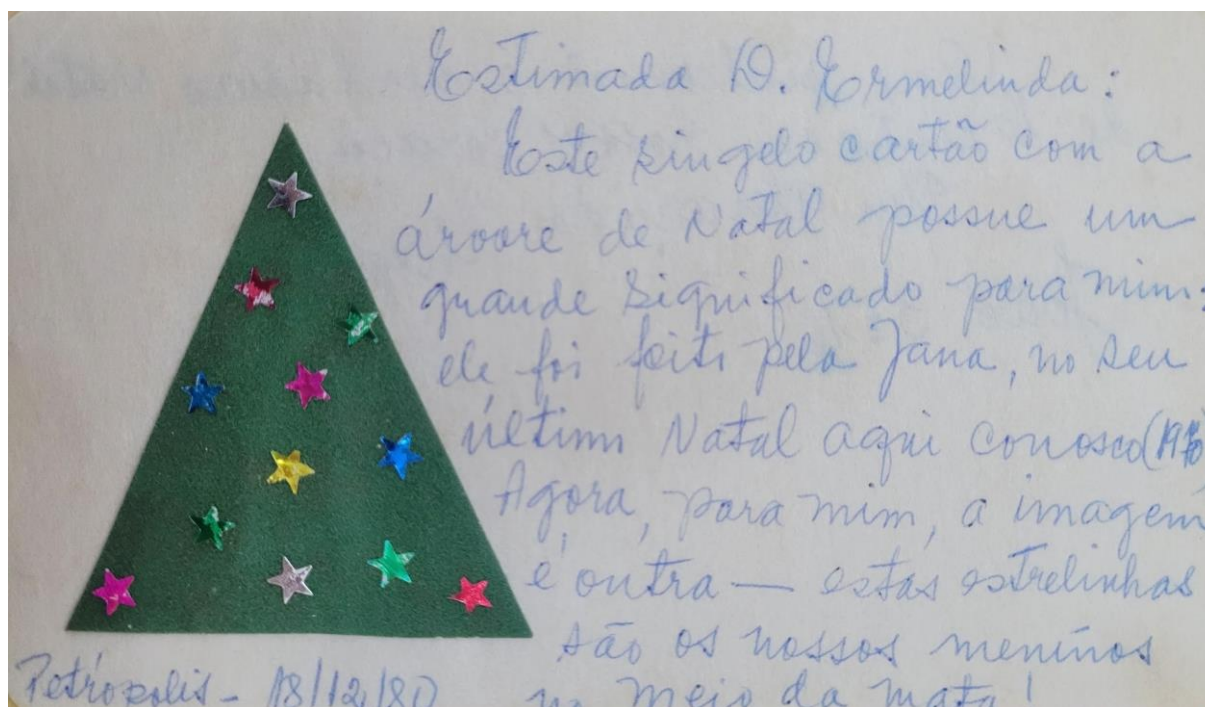 Estimada D. Ermelinda:
Este singelo cartão com a
árvore de Natal possue um
grande significado para mim:
ele foi feito pela Jana, no seu
último Natal aqui conosco
Agora, para mim, a imagem
é outra — estas estrelinhas
são os nossos meninos
no meio da mata!
Petrópolis - 18/12/80